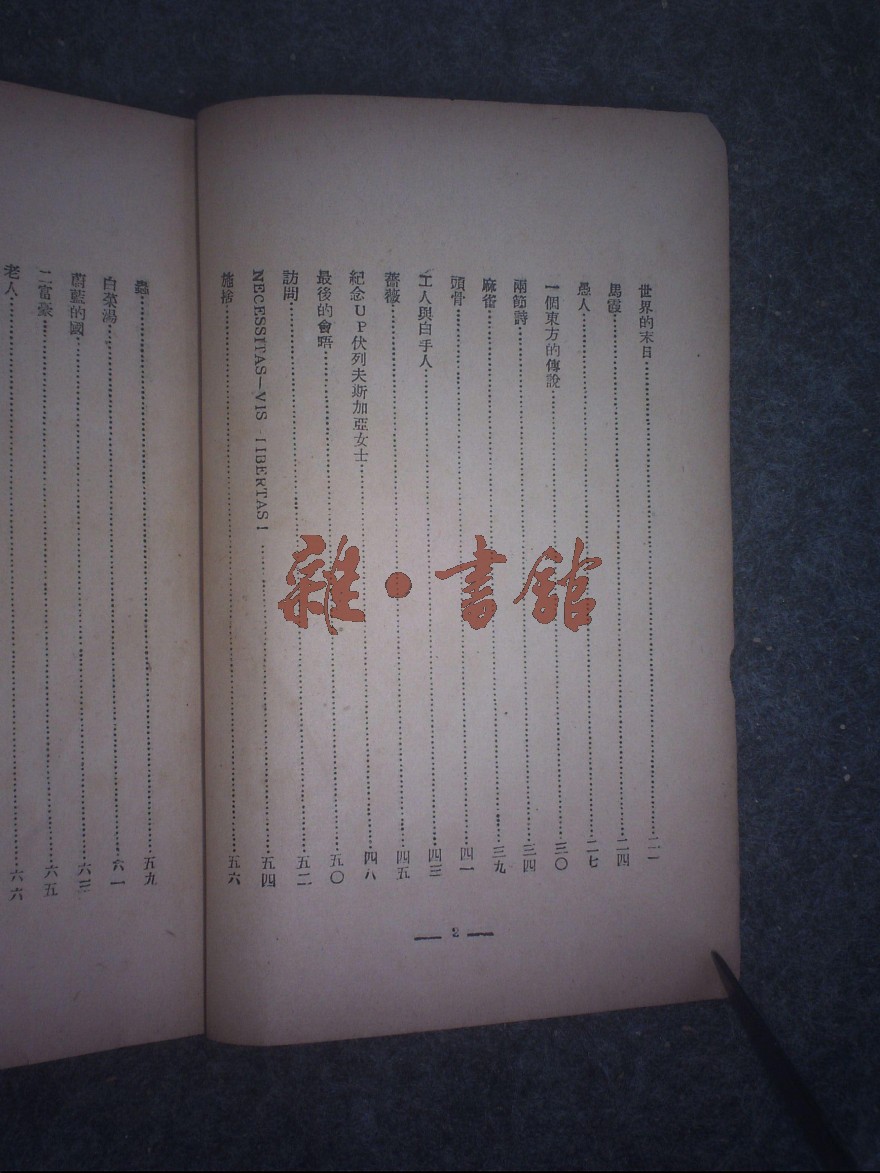 世界的末日……二一
馬霞……二四
愚人……二七
一個東方的傳說……三〇
兩節詩……三四
麻雀……三九
頭骨……四一
工人與白手人……四三
薔薇……四五
紀念UP伏列夫斯加亞女士……四八
最後的會晤……五〇
訪問……五二
NECESSITAS—VIS LIBERTAS!……五四
施捨……五六
— 2 —
蟲……五九
白菜湯……六一
蔚藍的國……六三
二富豪……六五
老人……六六
雜·書館